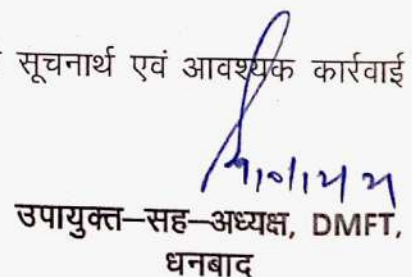 सूचनार्थ एवं आवश्यक कार्रवाई
उपायुक्त–सह–अध्यक्ष, DMFT,
धनबाद